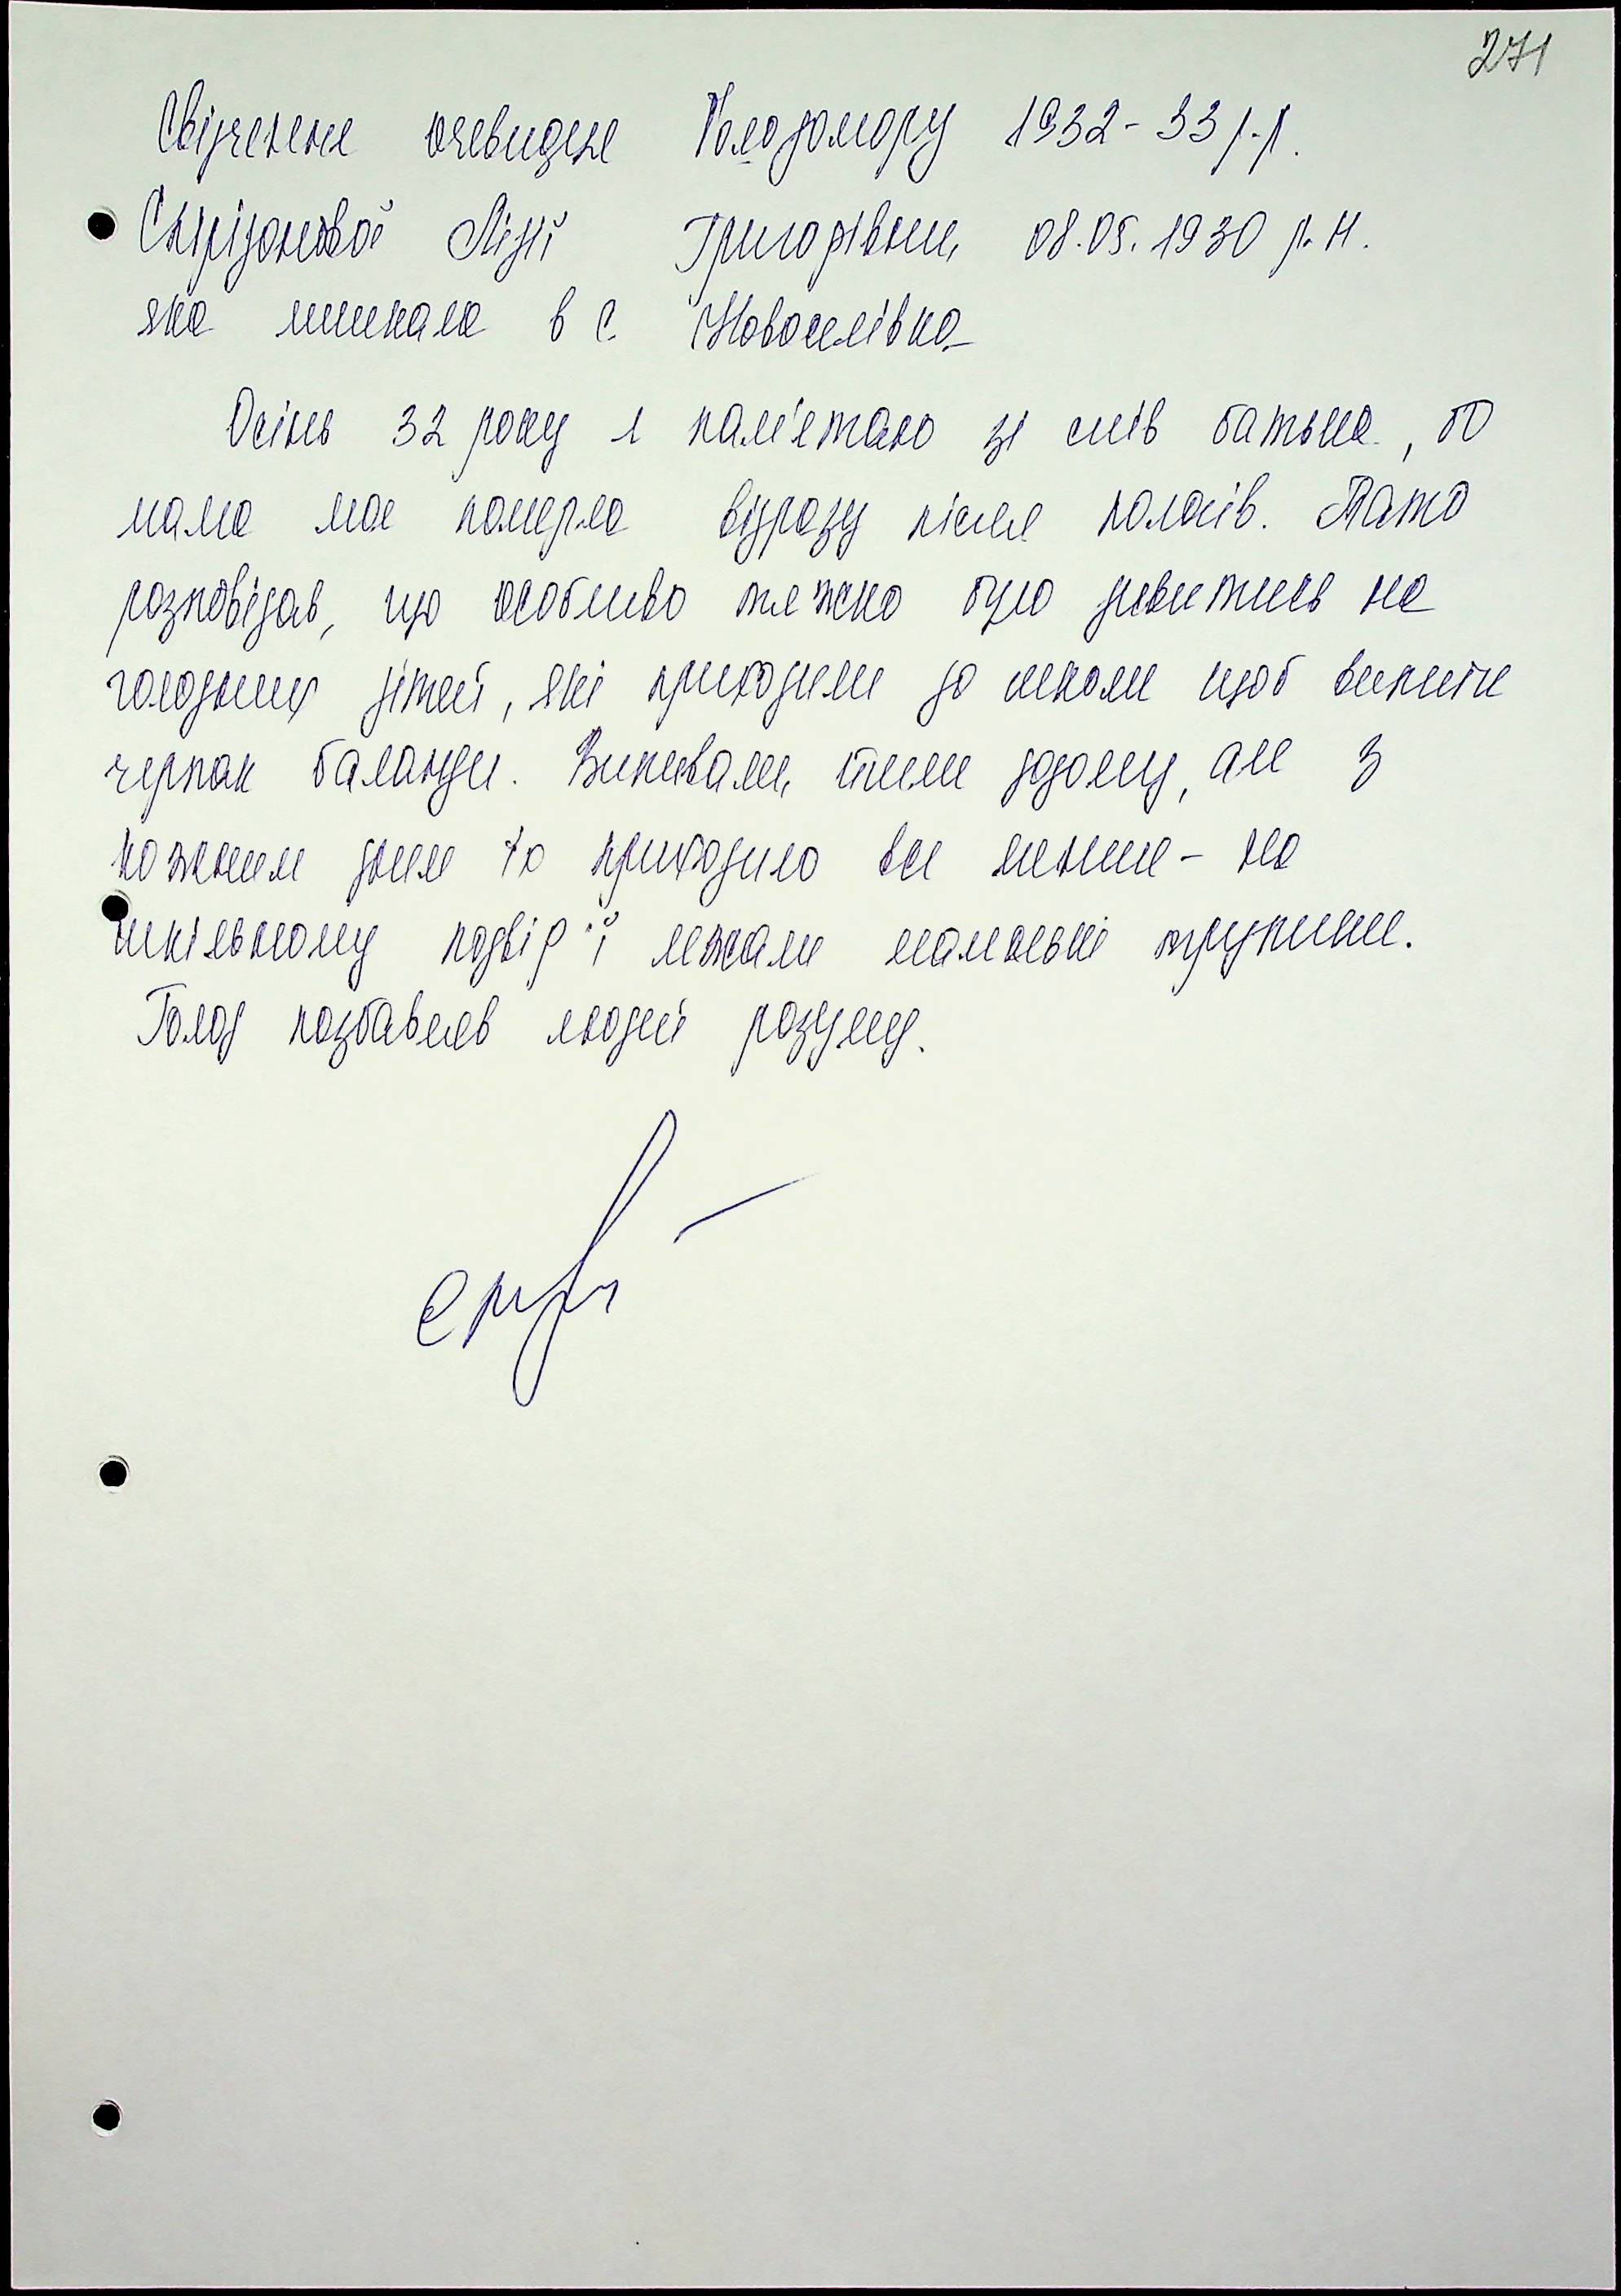 271
Свідчення очевидця Голодомору 1932-33 р.р.
Спірідонової Лідії Григорівни, 08.05.1930 р.н.
яка мешкала в с. Новоселівка
Осінь 32 року я пам'ятаю зі слів батька, бо
мама моя померла відразу після пологів. Тато
розповідав, що особливо тяжко було дивитись на
голодних дітей, які приходили до школи щоб випити
черпак баланди. Випивали, йшли додому, але з
кожним днем їх приходило все менше - на
шкільному подвір'ї лежали маленькі трупики.
Голод позбавляв людей розуму.